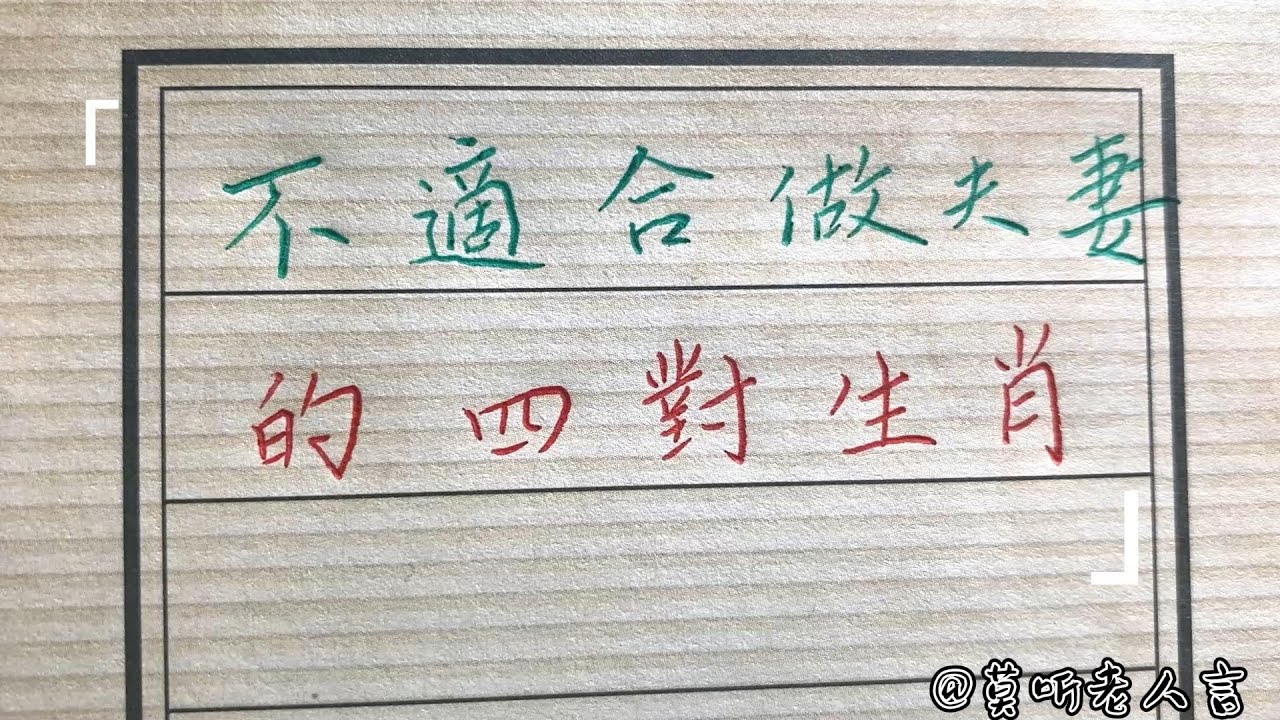 不適合做夫妻
的四對生肖
@莫听老人言